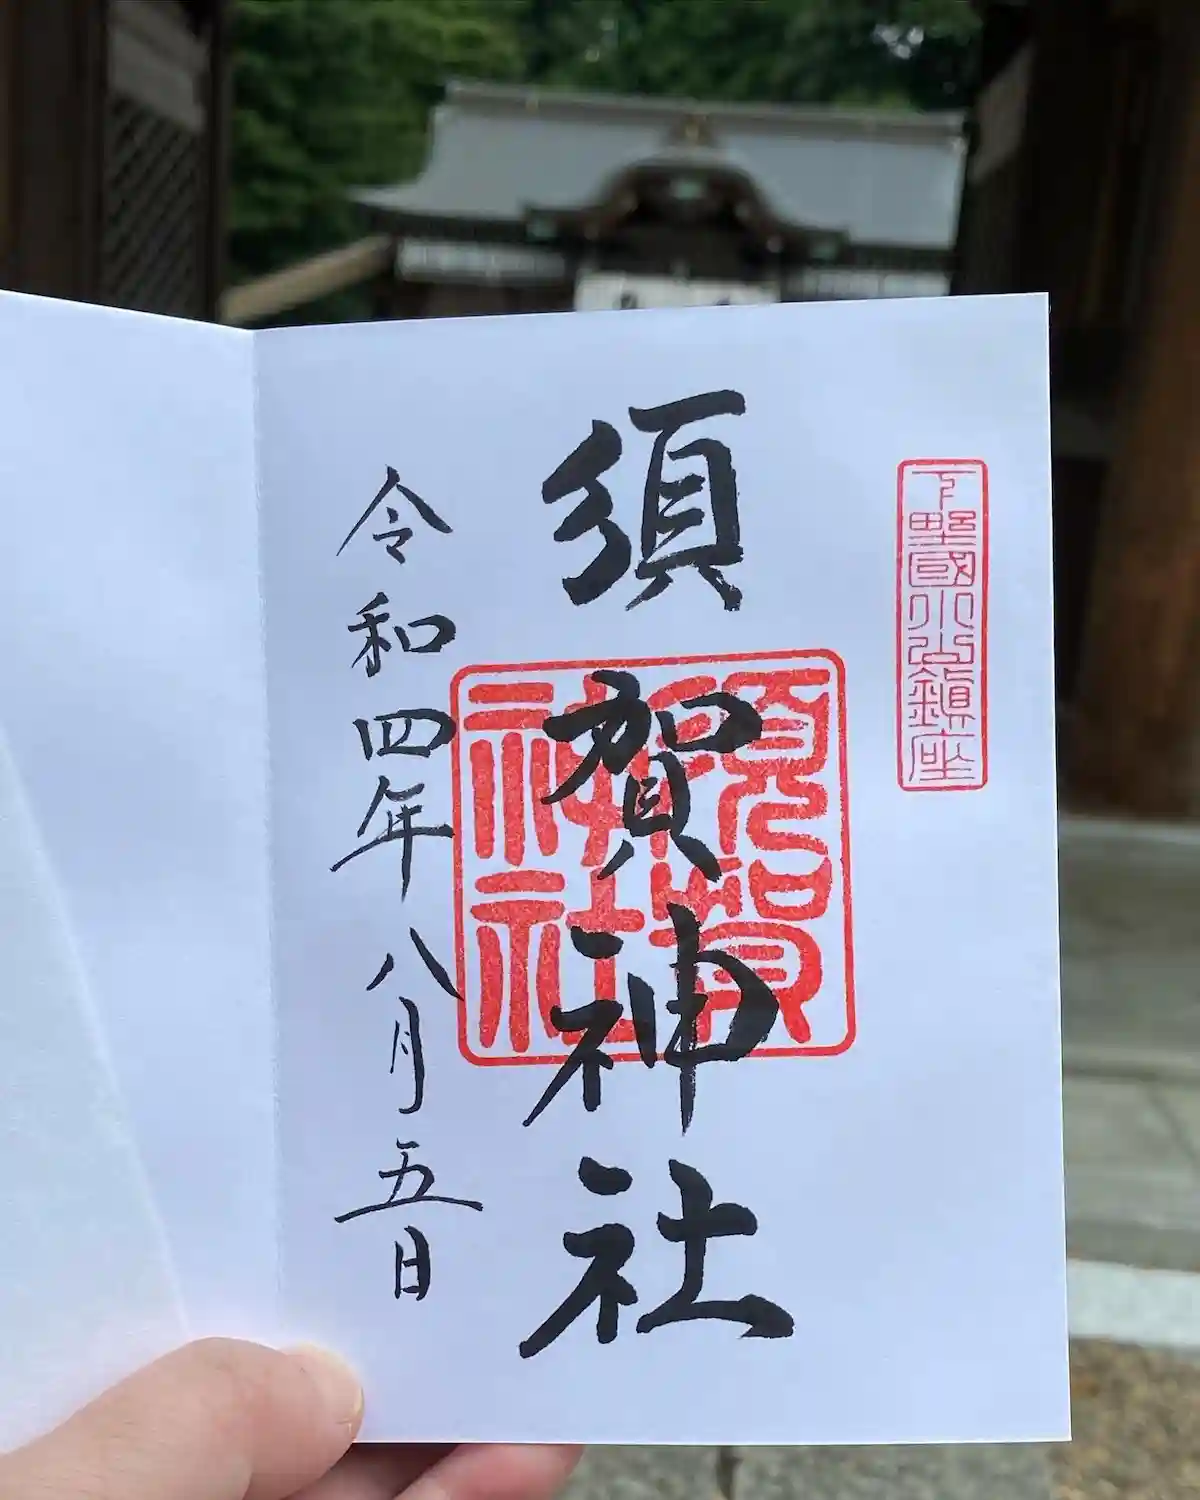 下野國小山鎮座
須賀神社
須賀
神社
令和四年八月五日